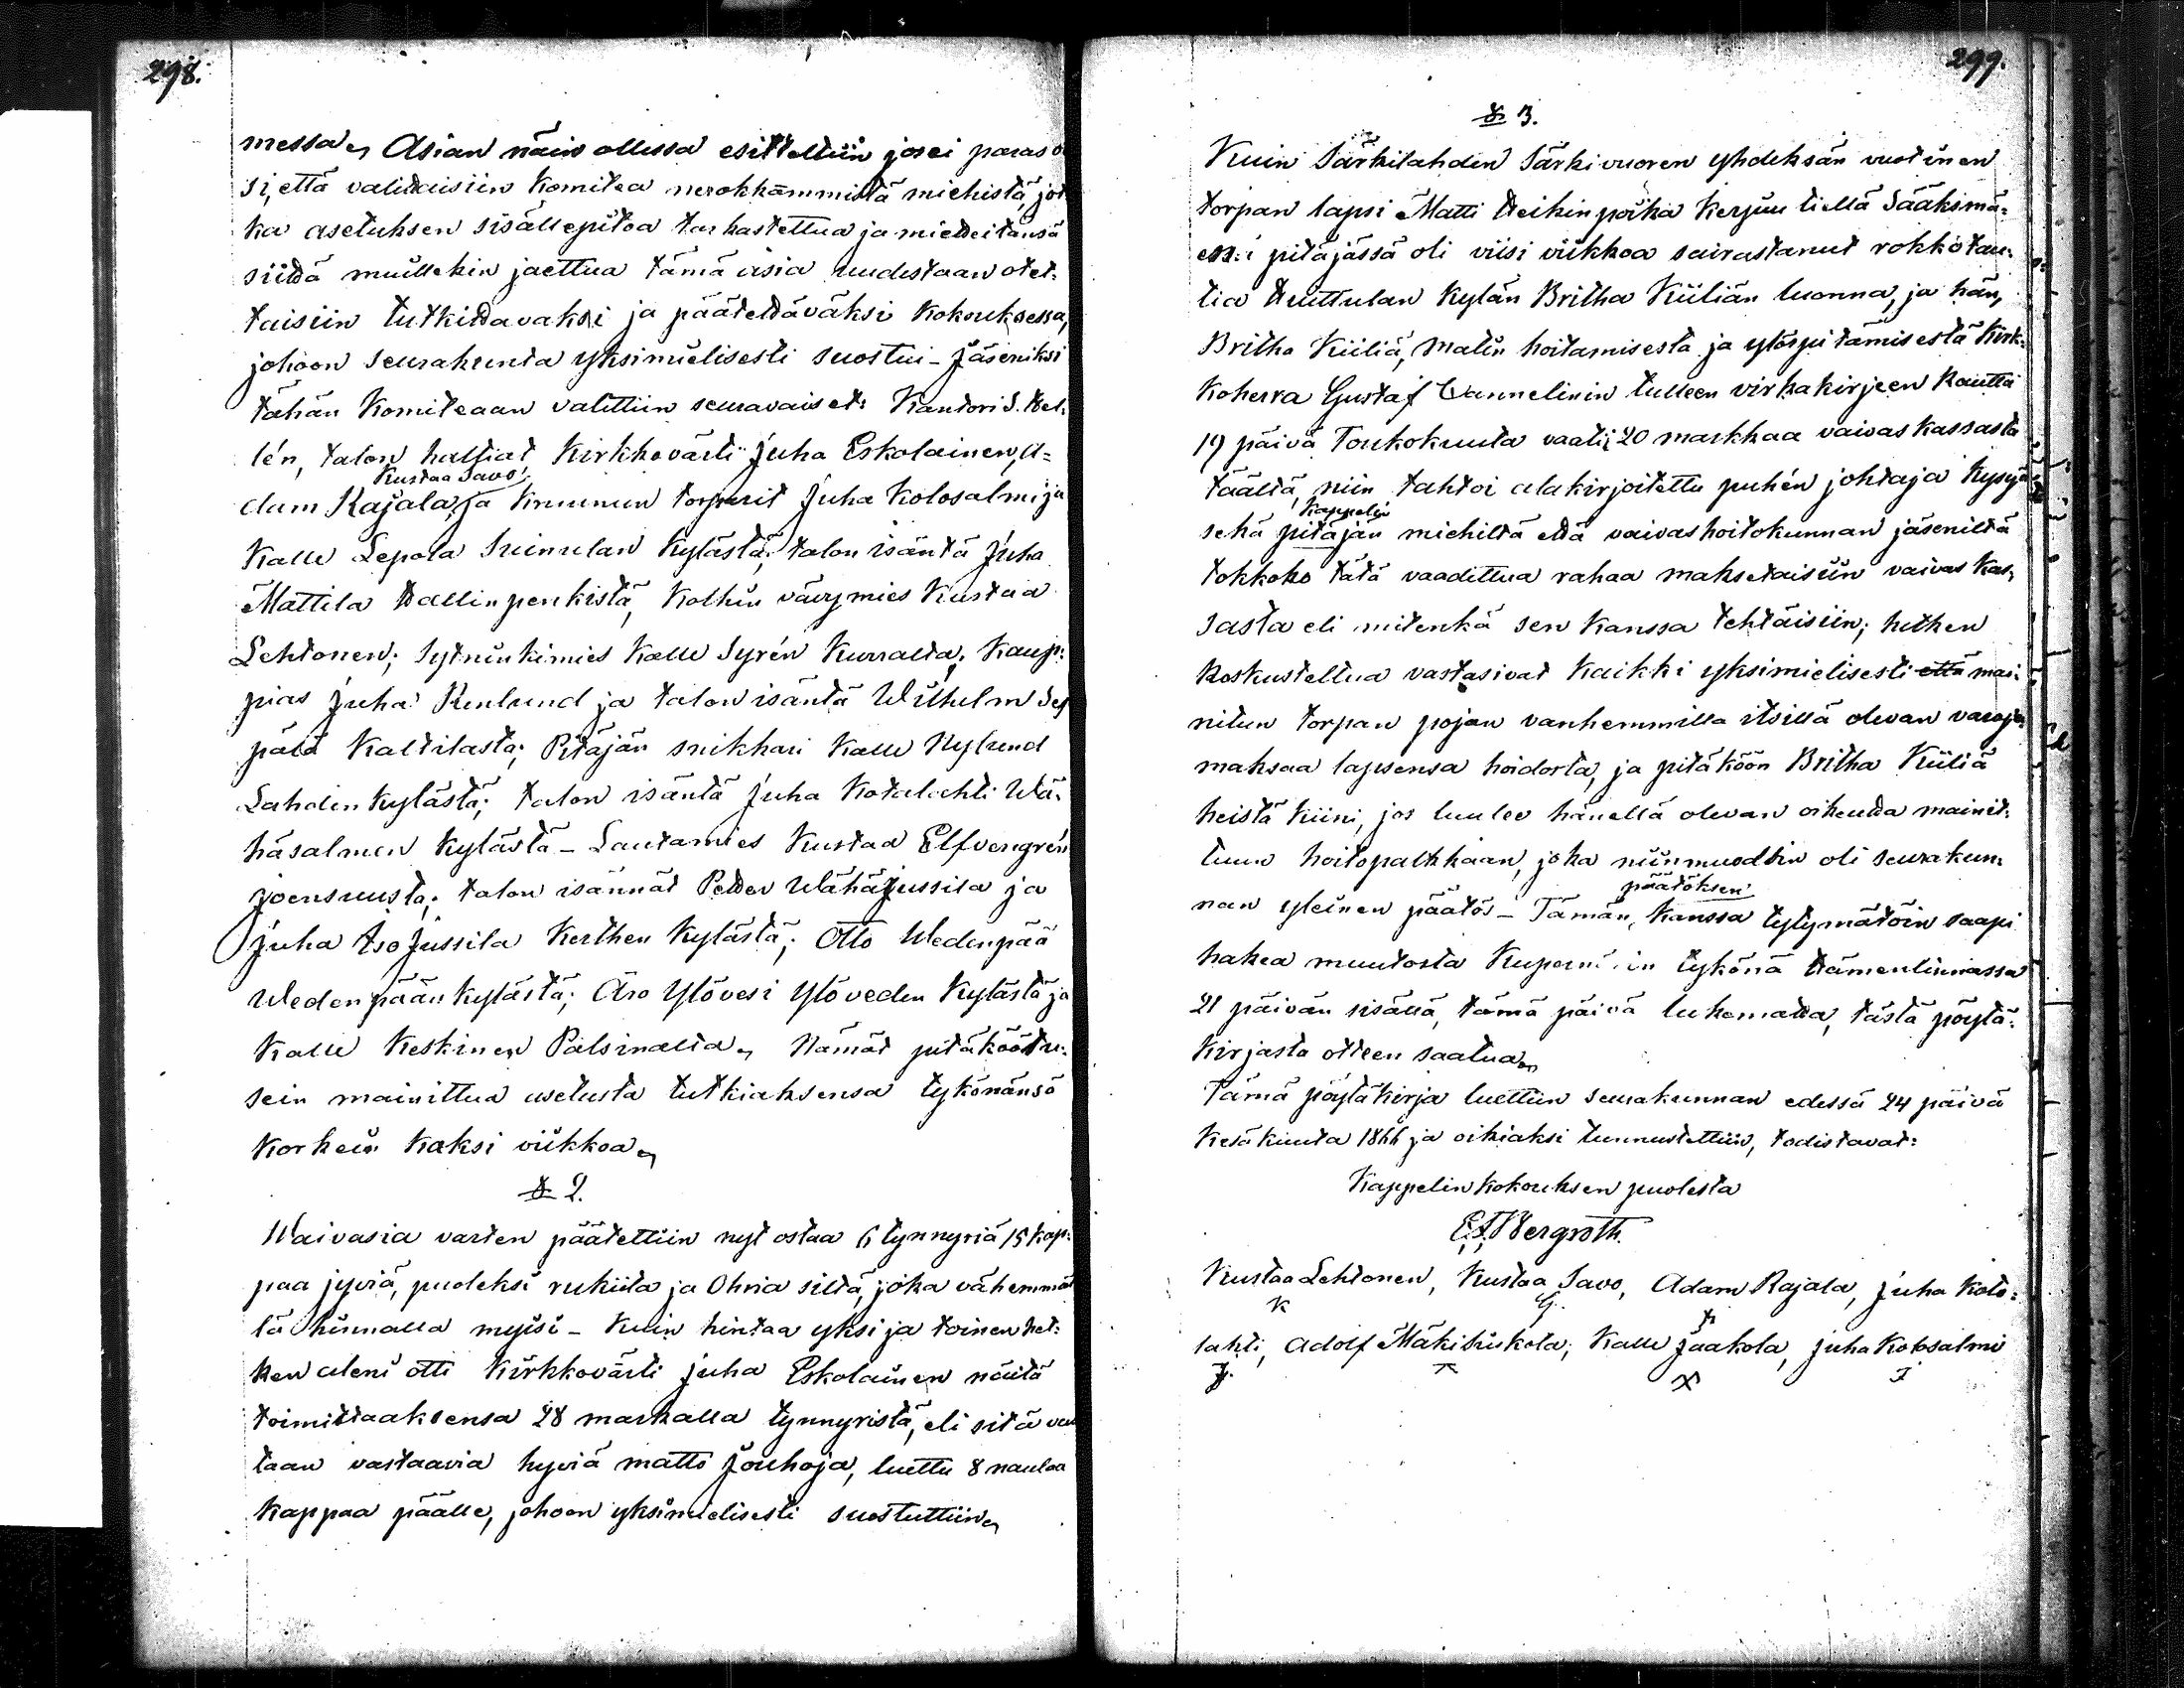 298.
messa, Asian näin ollessa esitettiin josei paras o
si, että valittaisiin Komitea nerokkāmmistä miehistä, jot
ka asetuksen sisällepitoa tarkastettua ja mietteitänsä
siitä muillekin jaettua tämä asia uudestaan otet-
taisiin tutkittavaksi ja päätettäväksi Kokouksessa,
johoon seurakunta yksimielisesti suostui - Jäseniksi
tähän Komiteaan valittiin seuravaiset: Kantori S. Hel-
lén, talon haltiat Kirkkovärti Juha Eskolainen, A=
Kustaa Savo
dam Rajala, ja Kruunun torparit Juha Kolosalmi ja
Kalle Lepola Suinulan Kylästä; talon isäntä Juha
Mattila Hallinpenkistä, Kolhin vävymies Kustaa
Lehtonen; Sytninkimies Kalle Syrén Kurralta; Kaup-
pias Juha Renlund ja talon isäntä Wilhelm Sep
pälä Kaltilasta; Pitäjän snikkari Kalle Nylund
Lahden Kylästä; talon isäntä Juha Kotalahti Wä-
häsalmen Kylästä - Lautamies Kustaa Elfvengrén
Joensuusta; talon isännät Petter WähäJussila ja
Juha IsoJussila Kerthen Kylästä; Otto Wedenpää
Wedenpään Kylästä; Aro Ylövesi Ylöveden Kylästä ja
Kalle Keskinen Palsinalta, Nämät pitäkööt u-
sein mainittua asetusta tutkiaksensa tykönänsö
Korkein kaksi viikkoa,
§ 2.
Waivasia varten päätettiin nyt ostaa 6 tynnyriä 15 kap-
paa jyviä, puoleksi rukiita ja Ohria siltä, joka vähemmäl
lä hinnalla myisi - Kuin hintaa yksi ja toinen het-
ken aleni otti Kirkkovärti Juha Eskolainen näitä
toimittaaksensa 28 markalla tynnyristä, eli sitä vas
taan vastaavia hyviä matto Jouhoja, luettu 8 naulaa
Kappaa päälle, johoon yksimielisesti suostuttiin,
299.
§ 3.
Kuin Särkilahden Särkivuoren yhdeksän vuotinen
torpan lapsi Matti Heikinpoika Kerjuu tiellä Sääksmä-
en pitäjässä oli viisi viikkoa sairastanut rokkotau-
tia Huttulan Kylän Britha Kiiliän luonna, ja hän,
Britha Kiiliä, Matin hoitamisesta ja ylöspitämisestä Kirk-
koherra Gustaf Wannelinin tulleen virkakirjeen kautta
19 päivä Toukokuuta vaatii 20 markkaa vaivaskassasta
täältä, niin tahtoi alakirjoitettu puhén johtaja kysyä
Kappelin
sekä pitäjän miehiltä että vaivashoitokunnan jäseniltä
tokkoko tätä vaadittua rahaa maksetaisiin vaivaskas-
sasta eli mitenkä sen kanssa tehtäisiin; hetken
keskusteltua vastasivat kaikki yksimielisesti että mai-
nitun torpan pojan vanhemmilla itsillä olevan varoja
maksaa lapsensa hoidosta, ja pitäköön Britha Kiiliä
heistä kiini, jos luulee hänellä olevan oikeutta mainit-
tuun hoitopalkkaan, joka niinmuodoin oli seurakun-
päätöksen
nan yleinen päätös - Tämän kanssa tytymätöin saapi
hakea muutosta Kupernin tykönä Hämenlinnassa
21 päivän sisällä, tämä päivä lukematta, tästä pöytä-
kirjasta otteen saatua,
Tämä pöytäkirja luettiin seurakunnan edessä 24 päivä
Kesäkuuta 1866 ja oikiaksi tunnustettiin, todistavat:
Kappelin kokouksen puolesta
E. F. Bergroth.
Kustaa Lehtonen, Kustaa Savo, Adam Rajala, Juha Kota-
K G.
lahti, Adolf Mäkihiiskola, Kalle Jaakola, Juha Kolosalmi
J. X